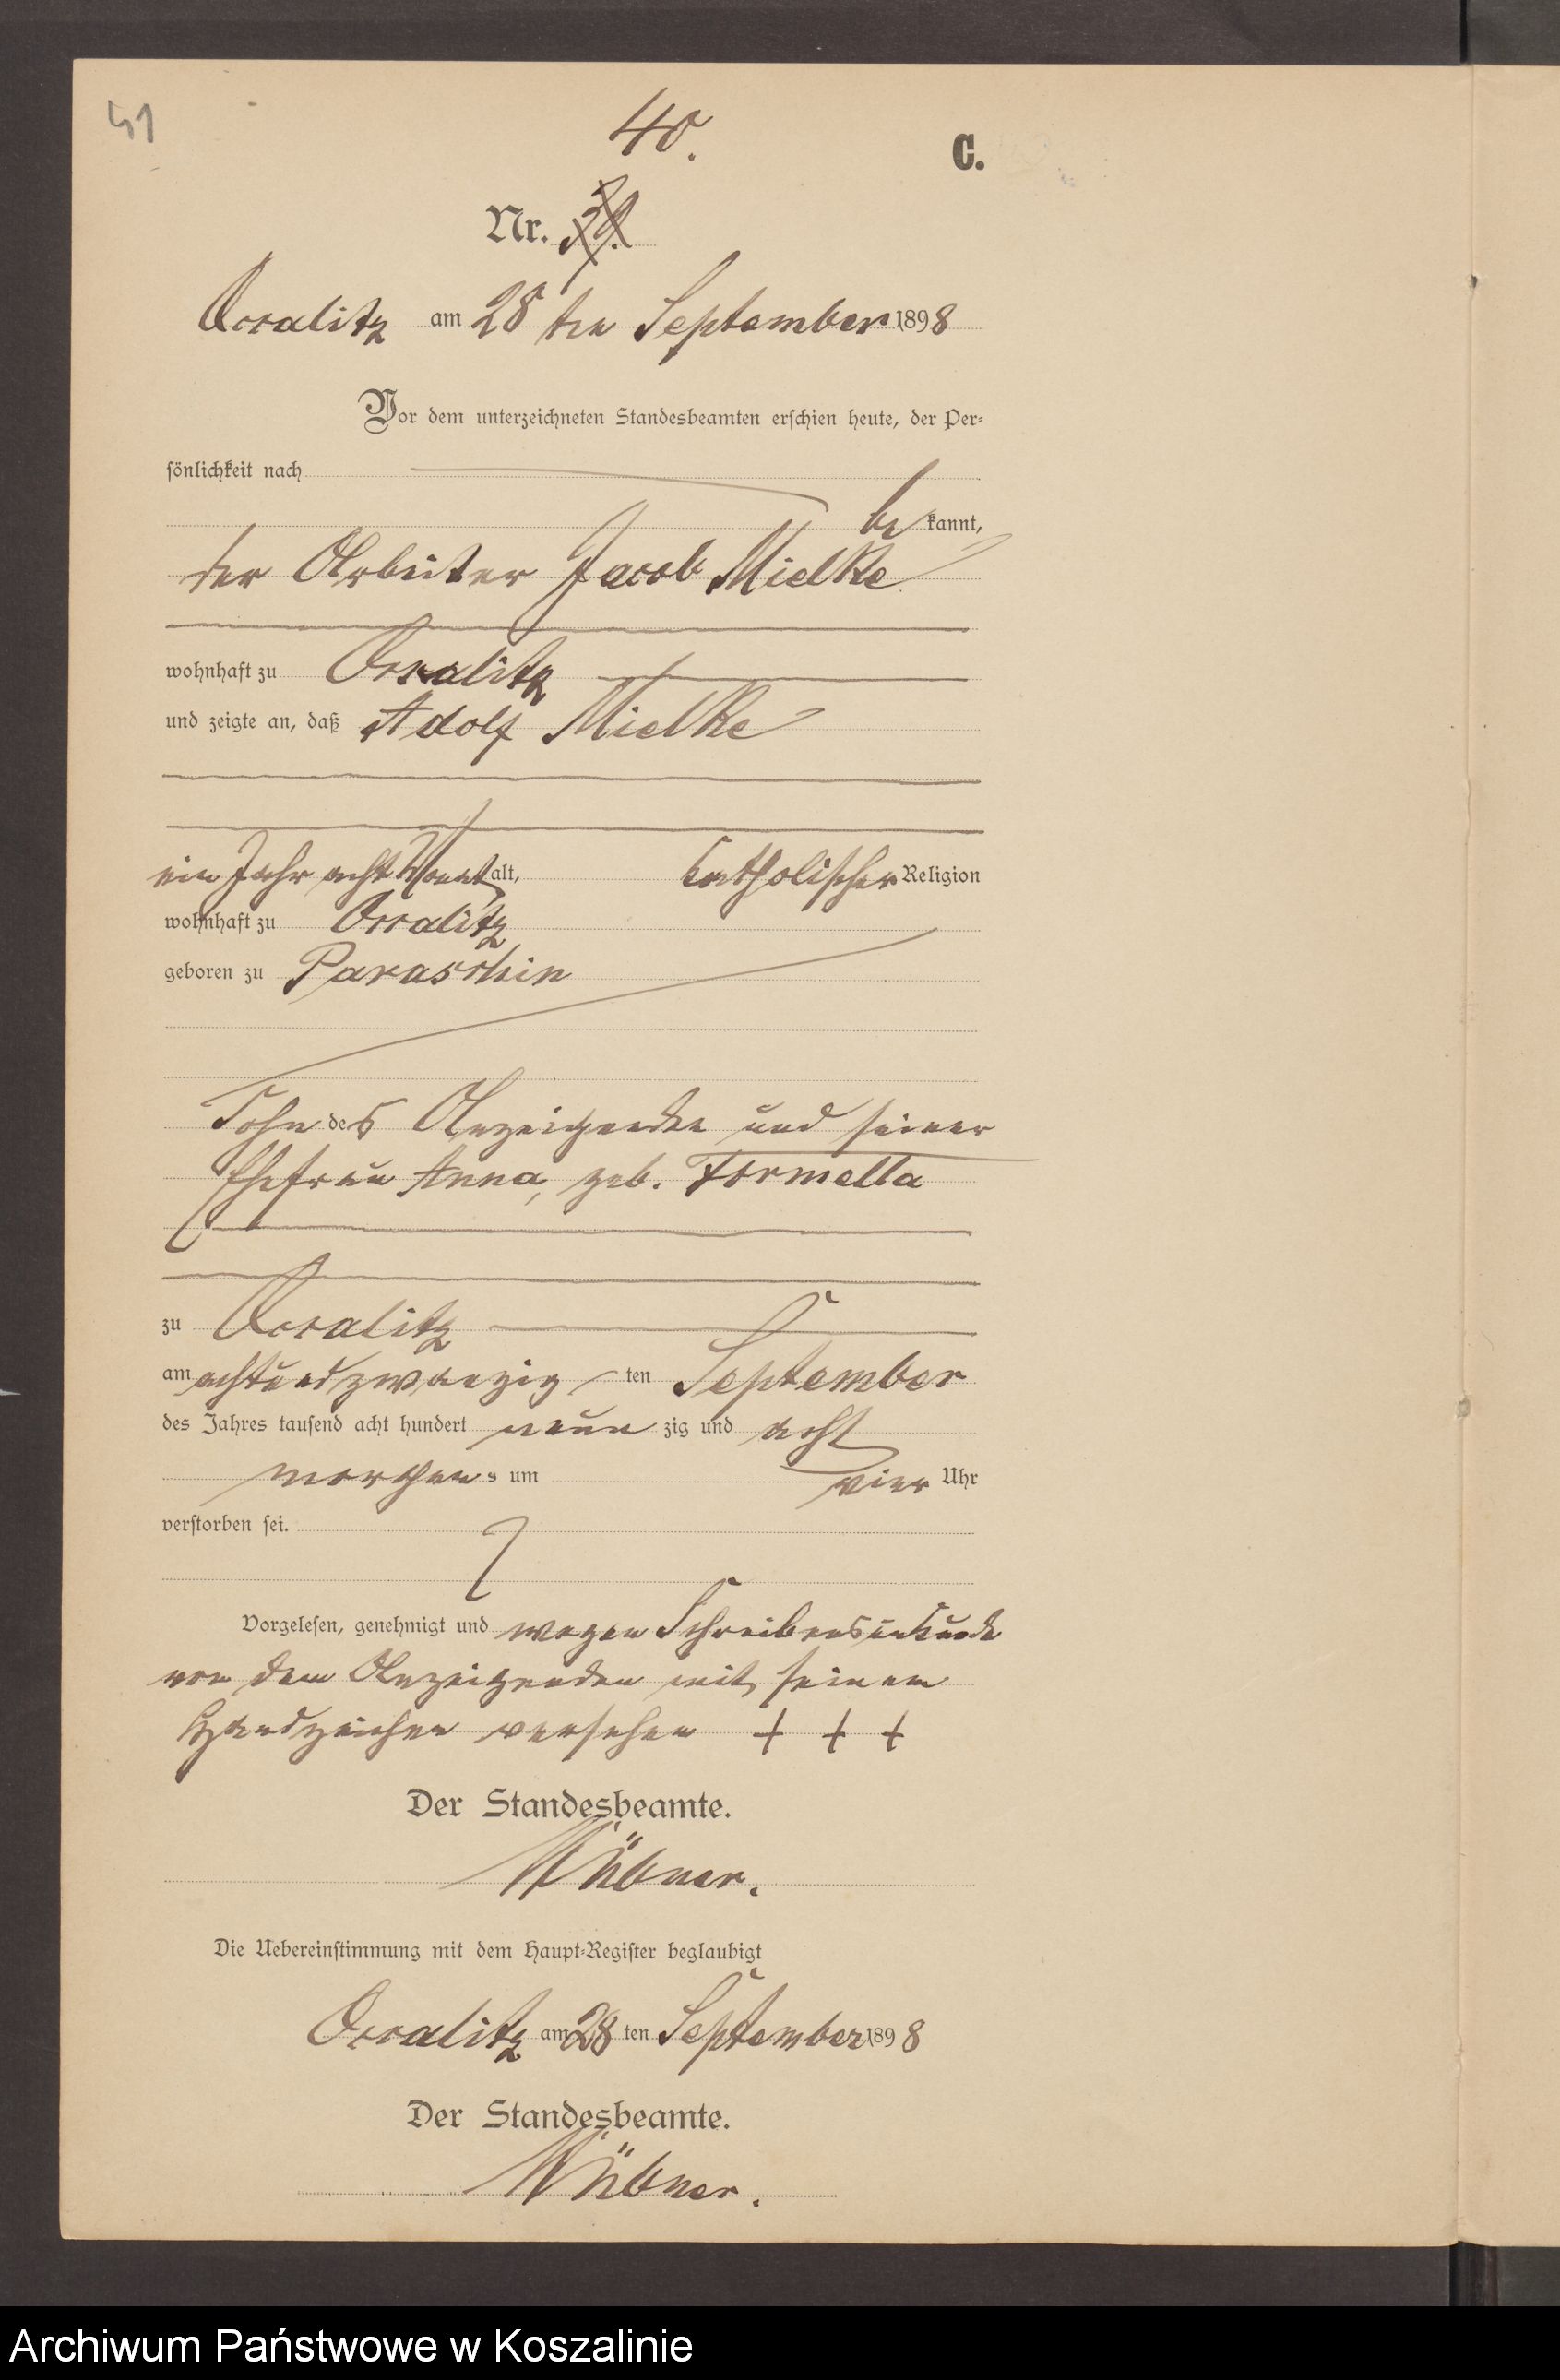 41
40.
C.
Nr. 39.
Ossalitz am 28 ten September 1898
Vor dem unterzeichneten Standesbeamten erschien heute, der Per-
sönlichkeit nach
be kannt,
der Arbeiter Jacob Mielke
wohnhaft zu Ossalitz
und zeigte an, daß Adolf Mielke
ein Jahr acht Monat alt, katholischer Religion
wohnhaft zu Ossalitz
geboren zu Paraschin
Sohn des Anzeigenden und seiner
Ehefrau Anna, geb. Formella
zu Ossalitz
am achtundzwanzig ten September
des Jahres tausend acht hundert neun zig und acht
morgens um vier Uhr
verstorben sei.
Vorgelesen, genehmigt und wegen Schreibensunkunde
von dem Anzeigenden mit seinem
Handzeichen versehen + + +
Der Standesbeamte.
Die Uebereinstimmung mit dem Haupt-Register beglaubigt
Ossalitz am 28 ten September 1898
Der Standesbeamte.
Archiwum Państwowe w Koszalinie